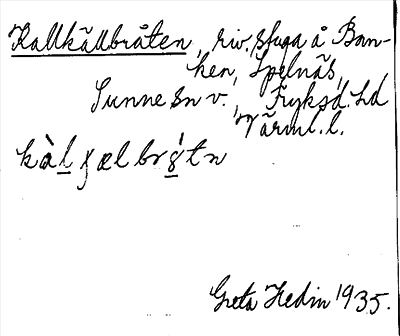 Kallkällbråten, riv. stuga å Ban-
ken, Spelnäs,
Sunne sn v., Fryksd. hd
Värml. l.
Greta Hedin 1935.